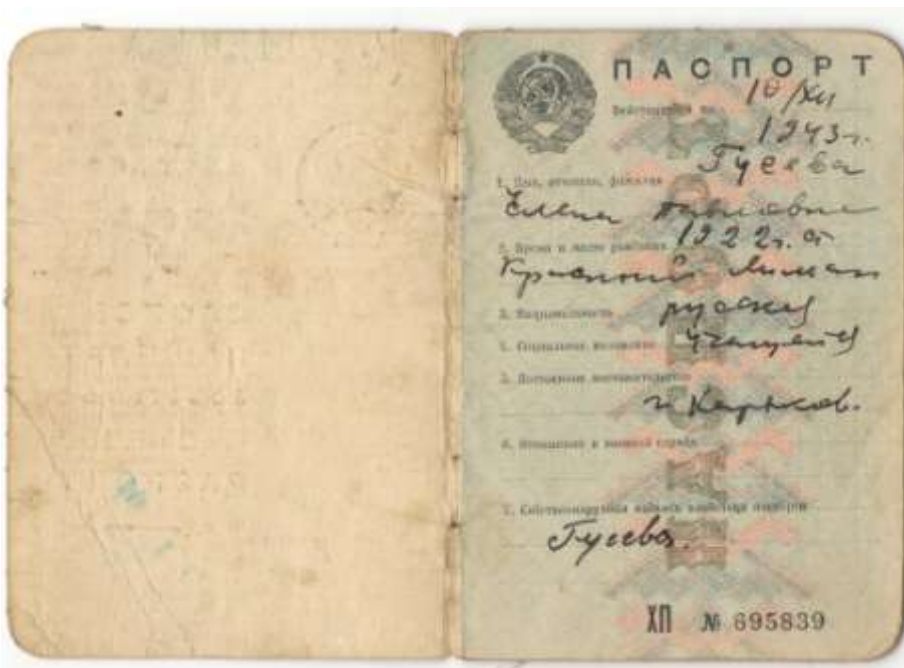 ПАСПОРТ
Действителен по 10/XII
1943 г.
Гусева
1. Имя, отчество, фамилия
Елена Павловна
2. Время и место рождения 1922 г.
Красный Лиман
3. Национальность русская
4. Социальное положение учащаяся
5. Постоянное местожительство
г. Харьков.
6. Отношение к военной службе
7. Собственноручная подпись владельца паспорта
Гусева.
ХП № 695839